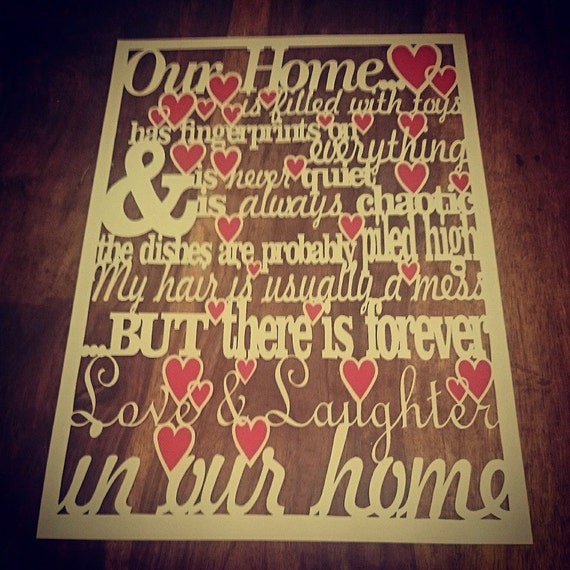 Our Home...
is filled with toys
has fingerprints on
everything
& is never quiet
is always chaotic
the dishes are probably piled high
My hair is usually a mess
...BUT there is forever
Love & Laughter
in our home